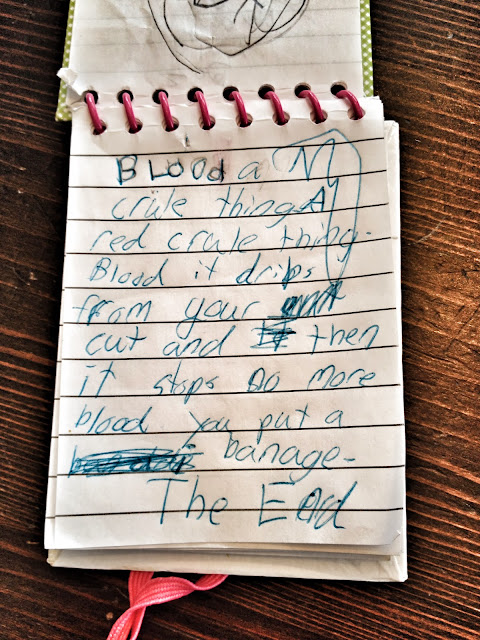 Blood a
crule thing A
red crule thing.
Blood it drips
from your
cut and then
it stops no more
blood you put a
banage.
The End